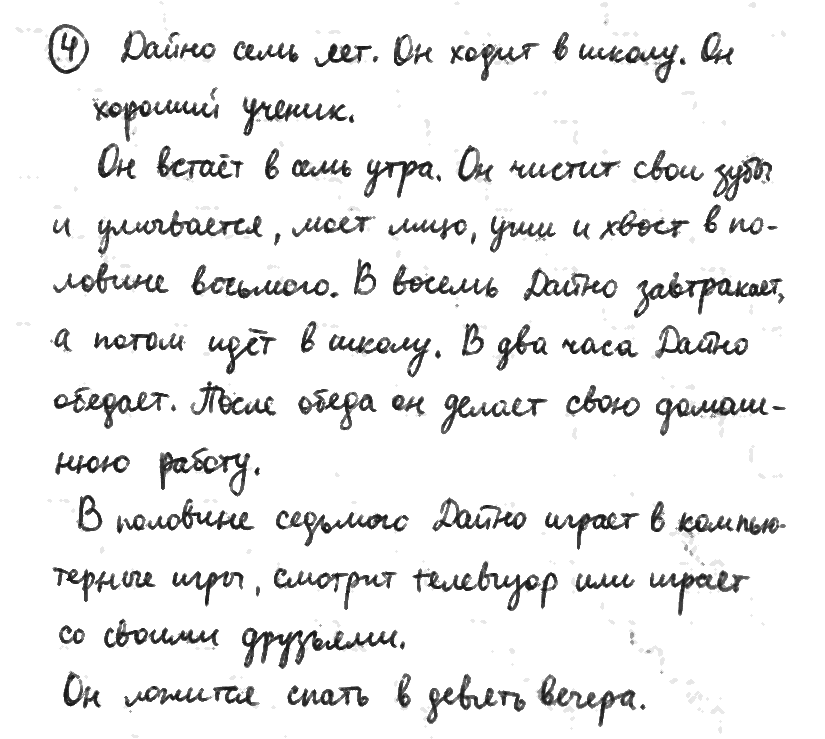 4 Дайно семь лет. Он ходит в школу. Он
хороший ученик.
Он встаёт в семь утра. Он чистит свои зубы
и умывается, моет лицо, уши и хвост в по-
ловине восьмого. В восемь Дайно завтракает,
а потом идёт в школу. В два часа Дайно
обедает. После обеда он делает свою домаш-
нюю работу.
В половине седьмого Дайно играет в компью-
терные игры, смотрит телевизор или играет
со своими друзьями.
Он ложится спать в девять вечера.